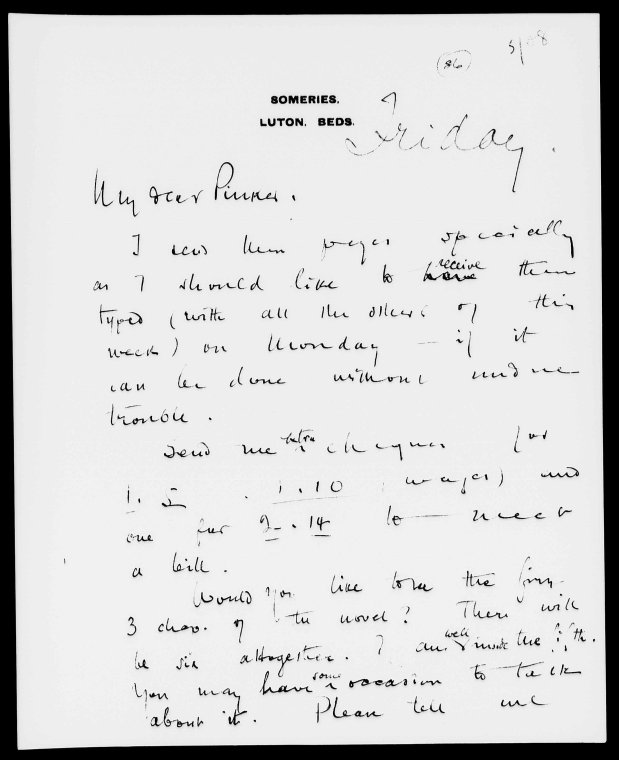 86
5/08
SOMERIES.
LUTON. BEDS.
Friday.
My dear Pinker.
I send these pages specially
as I should like to receive them
typed (with all the others of this
week) on Monday – if it
can be done without undue
trouble.
Send me cheques for
1. 5 . 1.10 (wages) and
one for 2.14 to meet
a bill.
Would you like to see the first
3 chap. of the novel? There will
be six altogether. I am well inside the fifth.
You may have some occasion to talk
about it. Please tell me